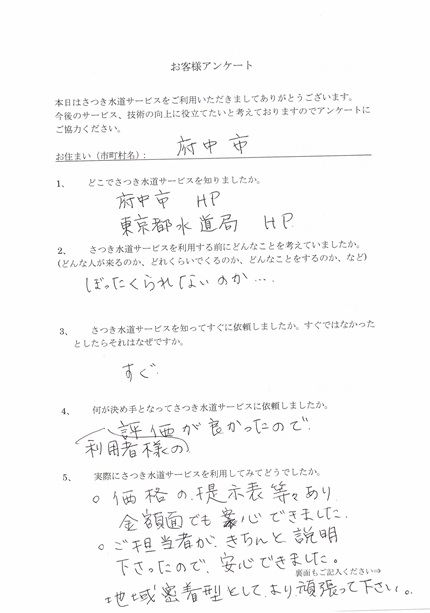 お客様アンケート
本日はさつき水道サービスをご利用いただきましてありがとうございます。
今後のサービス、技術の向上に役立てたいと考えておりますのでアンケートに
ご協力ください。
お住まい（市町村名）： 府中市
1、 どこでさつき水道サービスを知りましたか。
府中市 HP
東京都水道局 HP.
2、 さつき水道サービスを利用する前にどんなことを考えていましたか。
(どんな人が来るのか、どれくらいでくるのか、どんなことをするのか、など)
ぼったくられないのか….
3、 さつき水道サービスを知ってすぐに依頼しましたか。すぐではなかった
としたらそれはなぜですか。
すぐ.
4、 何が決め手となってさつき水道サービスに依頼しましたか。
利用者様の
評価が良かったので.
5、 実際にさつき水道サービスを利用してみてどうでしたか。
○価格の提示表等々あり
金額面でも安心できました.
○ご担当者が、きちんと説明
下さったので、安心できました。
裏面もご記入ください⇒
地域密着型として、より頑張って下さい。